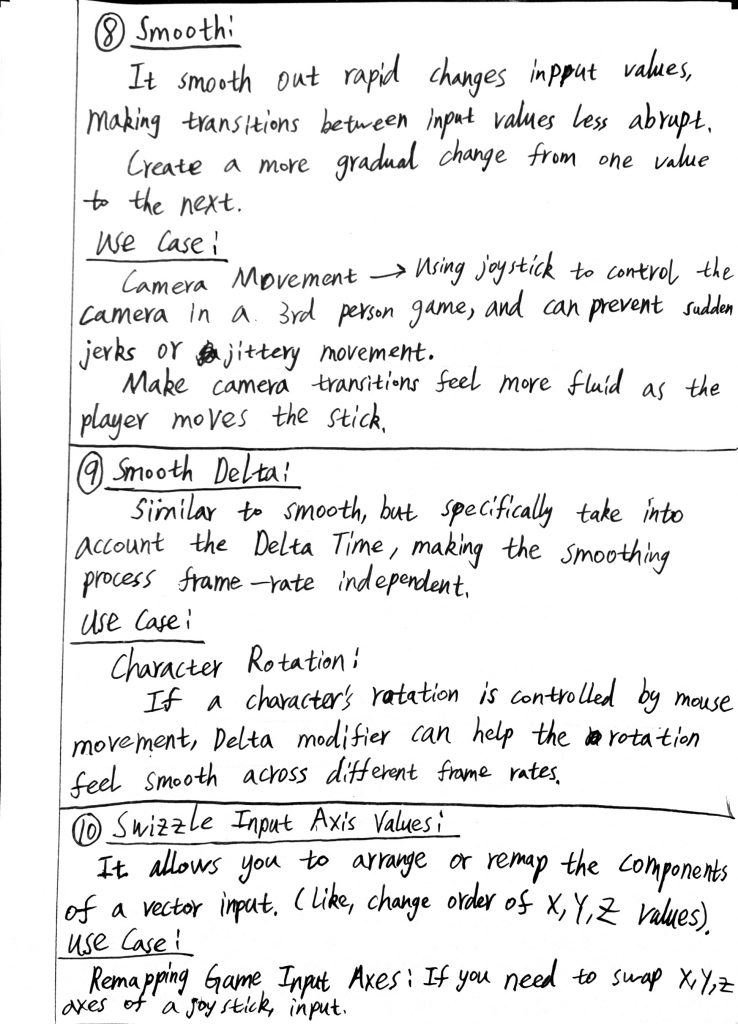 ⑧ Smooth:
It smooth out rapid changes inpput values,
Making transitions between input values less abrupt.
Create a more gradual change from one value
to the next.
Use Case:
Camera Movement → Using joystick to control the
camera in a 3rd person game, and can prevent sudden
jerks or jittery movement.
Make camera transitions feel more fluid as the
player moves the stick.
⑨ Smooth Delta:
Similar to smooth, but specifically take into
account the Delta Time, making the smoothing
process frame-rate independent.
Use Case:
Character Rotation:
If a character's rotation is controlled by mouse
movement, Delta modifier can help the rotation
feel smooth across different frame rates.
⑩ Swizzle Input Axis Values:
It allows you to arrange or remap the components
of a vector input. (Like, change order of X, Y, Z values).
Use Case:
Remapping Game Input Axes: If you need to swap X, Y, Z
axes of a joystick, input.